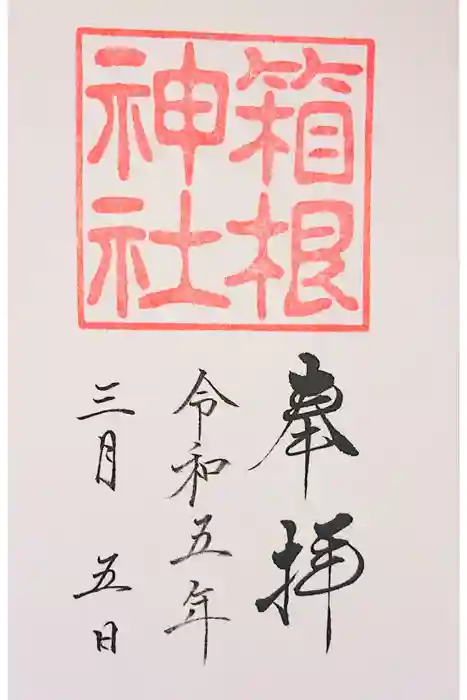 箱根
神社
奉拝
令和五年
三月五日